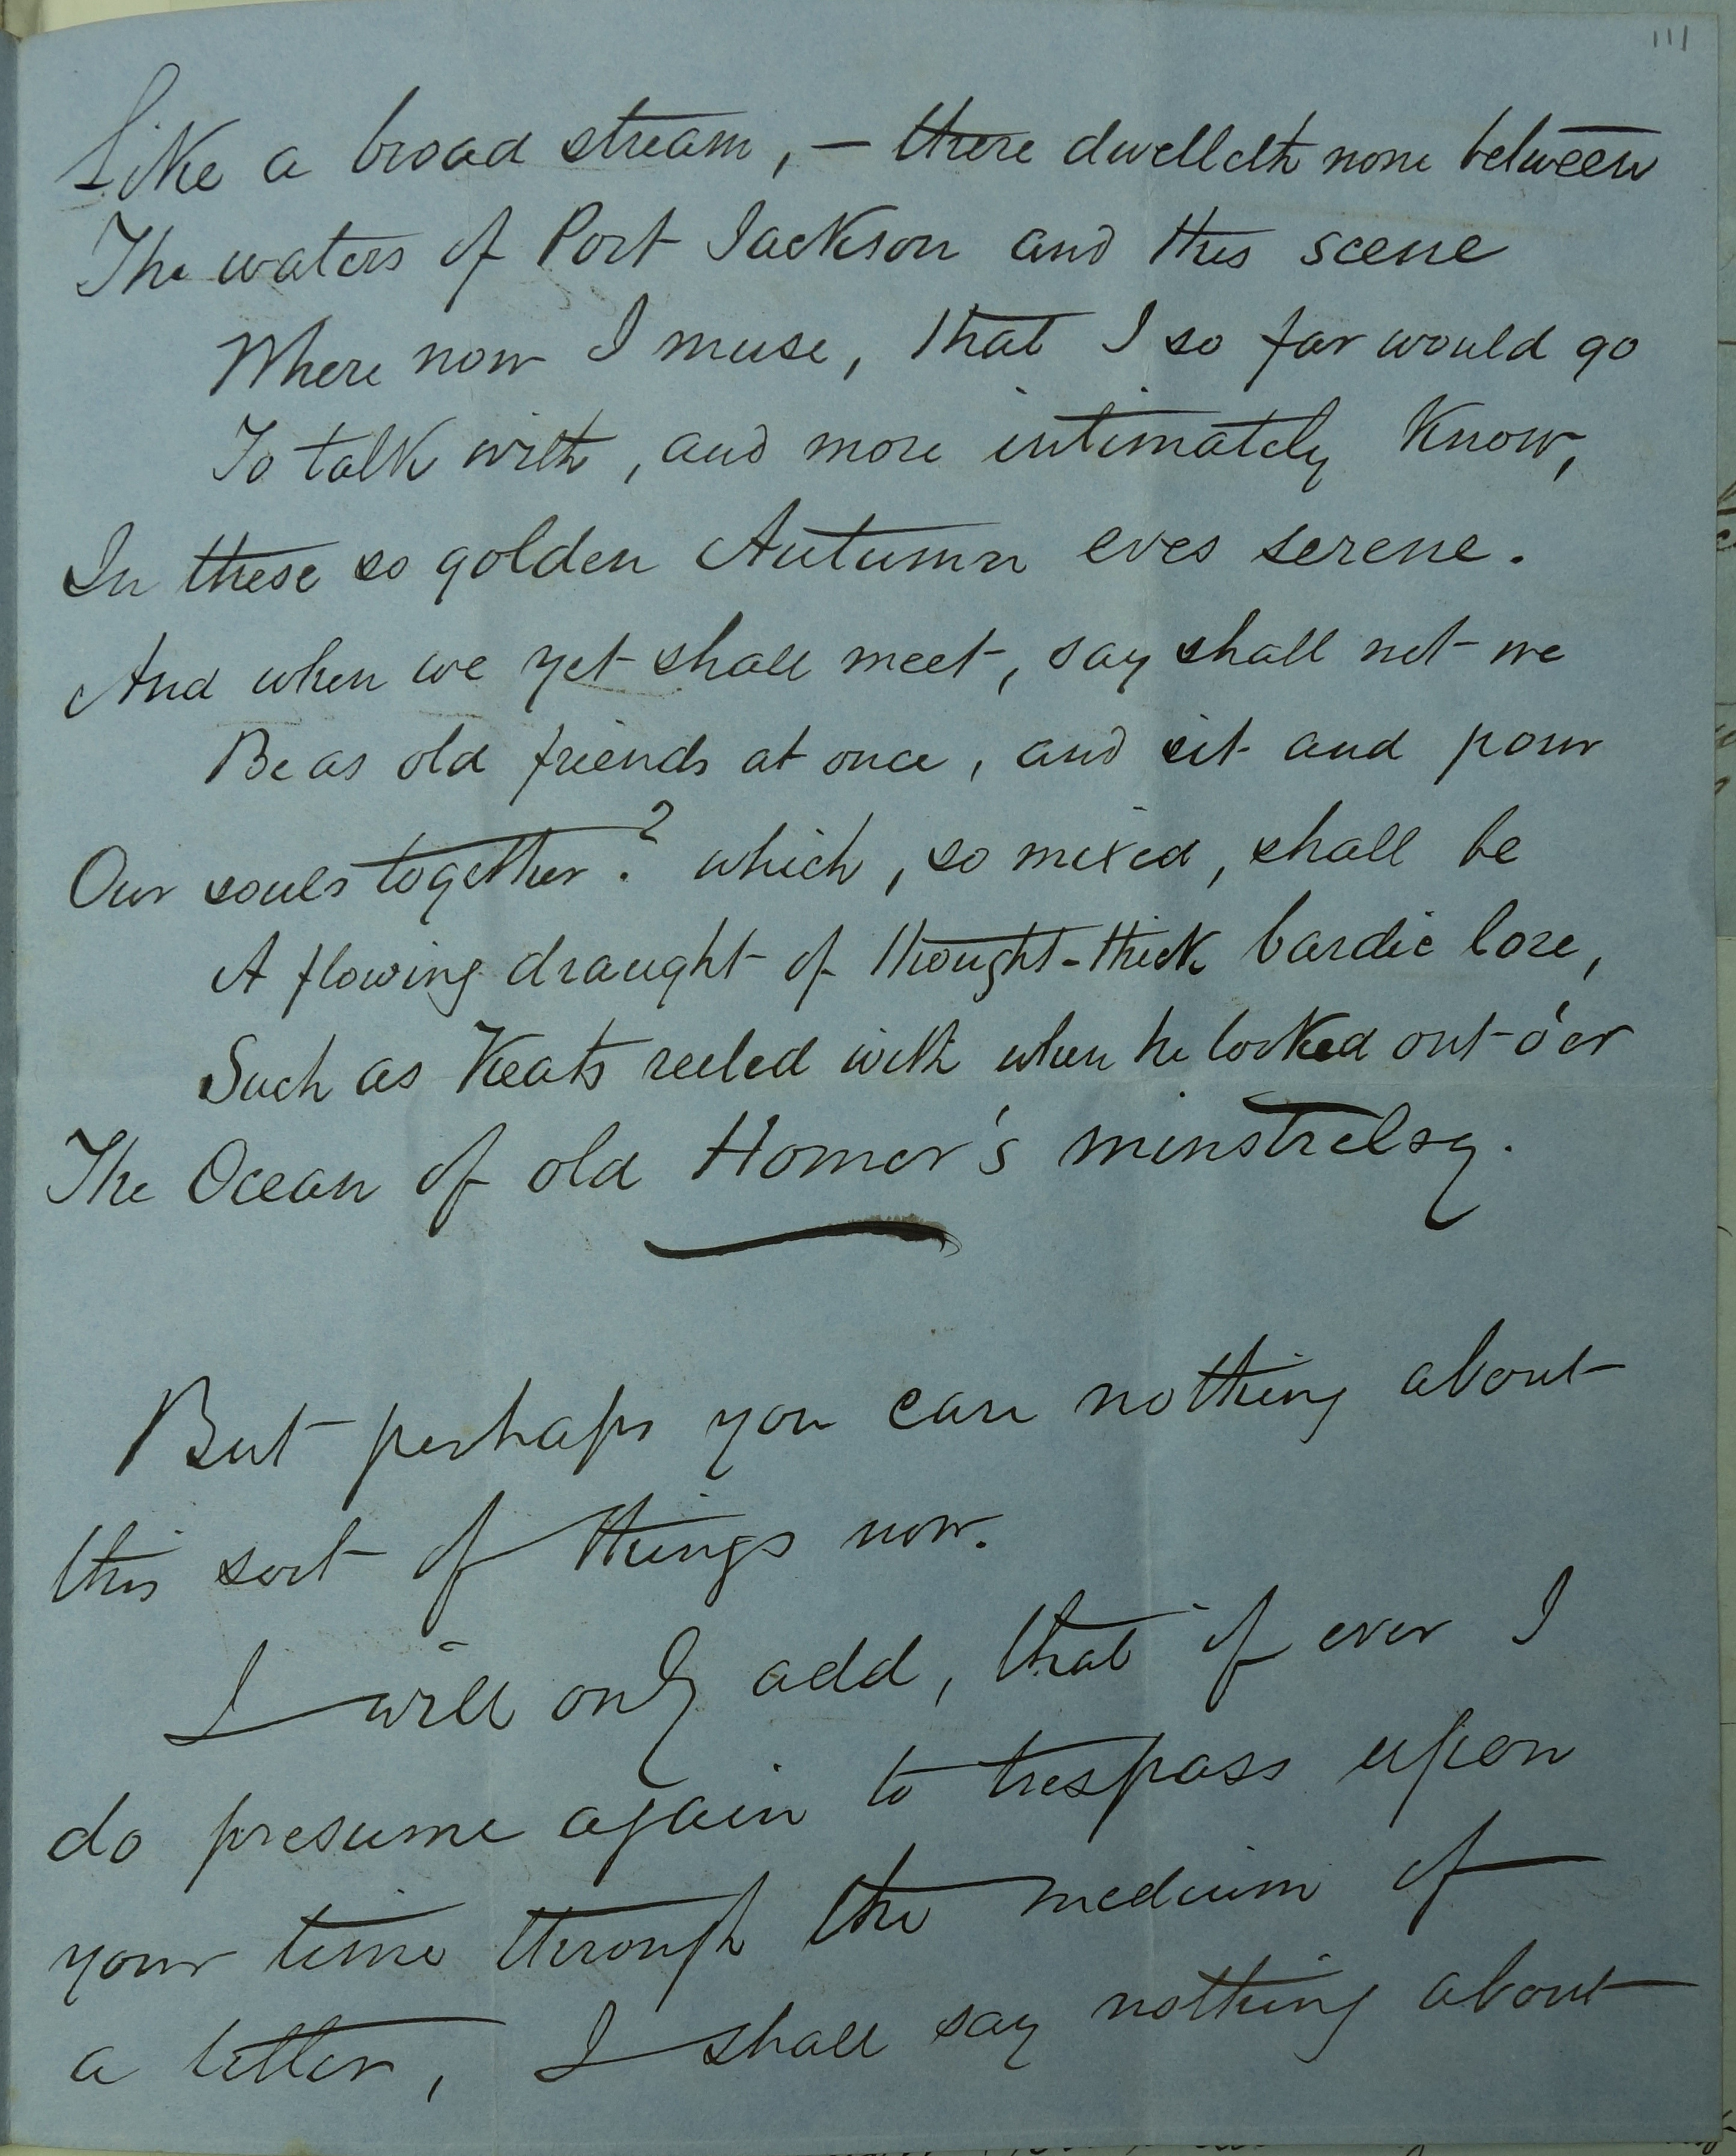 111
Like a broad stream, — there dwelleth none between
The waters of Port Jackson and this scene
Where now I muse, that I so far would go
To talk with, and more intimately know,
In these so golden Autumn eves serene.
And when we yet shall meet, say shall not we
Be as old friends at once, and sit and pour
Our souls together? which, so mixed, shall be
A flowing draught of thought-thick bardic lore,
Such as Keats reeled with when he looked out o'er
The Ocean of old Homer's minstrelsy.
But perhaps you care nothing about
this sort of things now.
I will only add, that if ever I
do presume again to trespass upon
your time through the medium of
a letter, I shall say nothing about